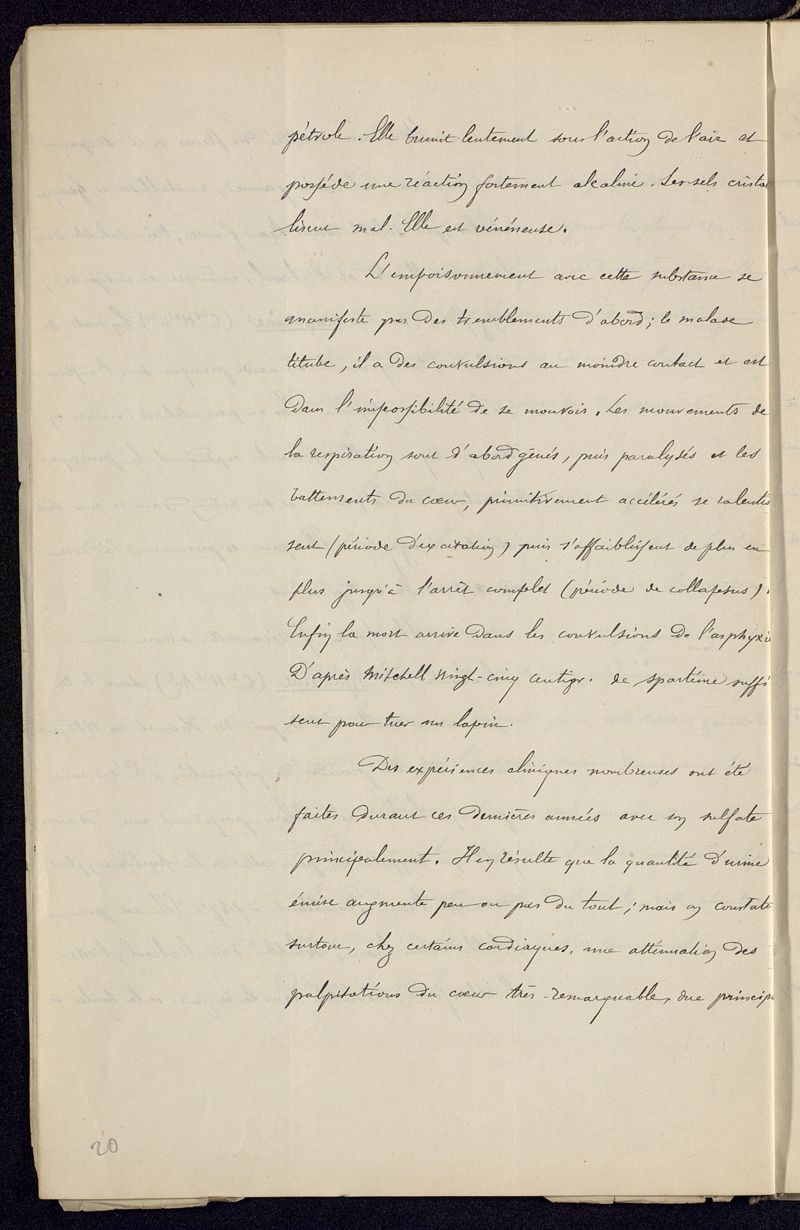 pétrole. Elle brunit lentement sous l'action de l'air et
possède une réaction fortement alcaline. Les sels crista
lisent mal. Elle est vénéneuse.
L'empoisonnement avec cette substance se
manifeste par des tremblements d'abord; le malade
titube, il a des convulsions au moindre contact et est
dans l'impossibilité de se mouvoir. Les mouvements de
la respiration sont d'abord gênés, puis paralysés et les
battements du cœur, primitivement accélérés se ralentis
sent (période d'excitation) puis s'affaiblissent de plus en
plus jusqu'à l'arrêt complet (période de collapsus).
Enfin la mort arrive dans les convulsions de l'asphyxie
D'après Mitchell vingt-cinq centigr. de spartéine suffi
sent pour tuer un lapin.
Des expériences cliniques nombreuses ont été
faites durant ces dernières années avec son sulfate
principalement. Il en résulte que la quantité d'urine
émise augmente peu ou pas du tout; mais on constate
surtout, chez certains cardiaques, une atténuation des
palpitations du cœur très-remarquable, due princip
20